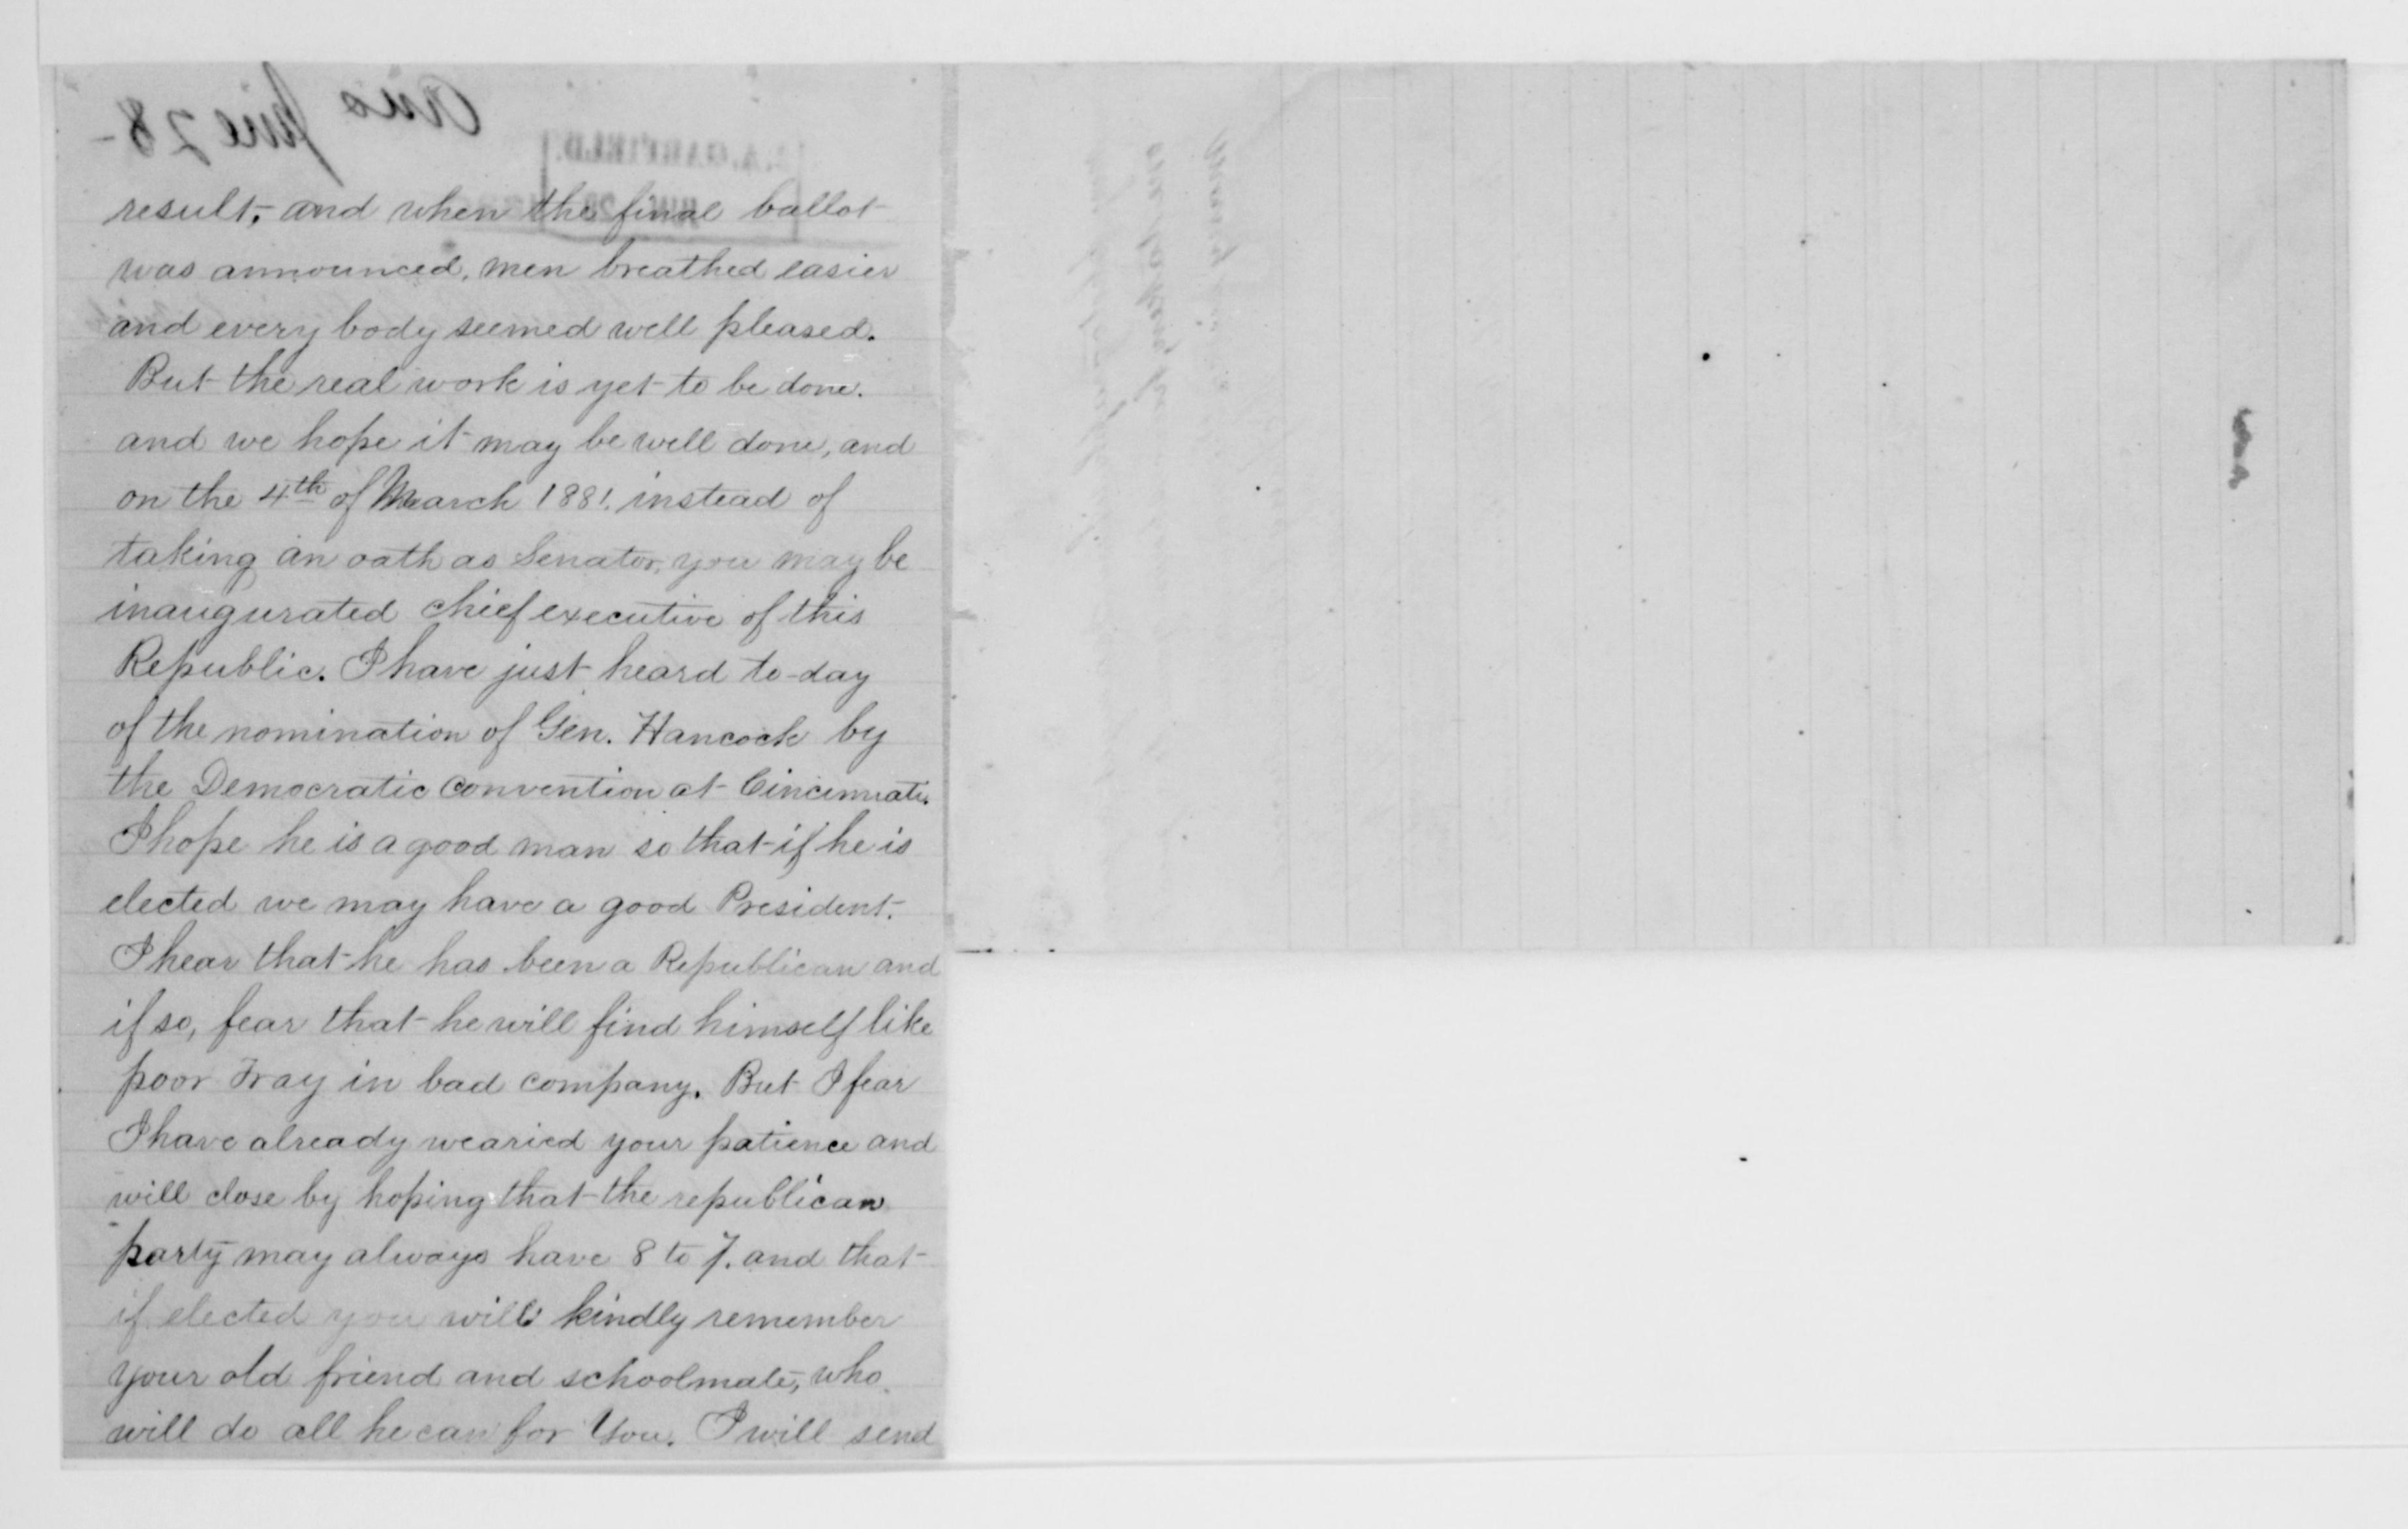 result, and when the final ballot
was announced, men breathed easier
and every body seemed well pleased.
But the real work is yet to be done.
and we hope it may be well done, and
on the 4th of March 1881. instead of
taking an oath as Senator, you may be
inaugurated chief executive of this
Republic. I have just heard to-day
of the nomination of Gen. Hancock by
the Democratic Convention at Cincinnati.
I hope he is a good man so that if he is
elected we may have a good President.
I hear that he has been a Republican and
if so, fear that he will find himself like
poor Tray in bad company. But I fear
I have already wearied your patience and
will close by hoping that the republican
party may always have 8 to 7. and that
if elected you will kindly remember
your old friend and schoolmate, who
will do all he can for You. I will send